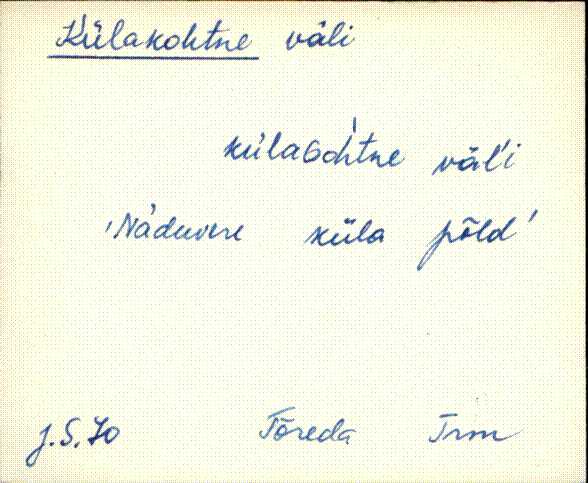 Külakohtne väli
külaGoh'tne väĺ'i
'Näduvere küla põld'
J.S.70 Tõreda Trm